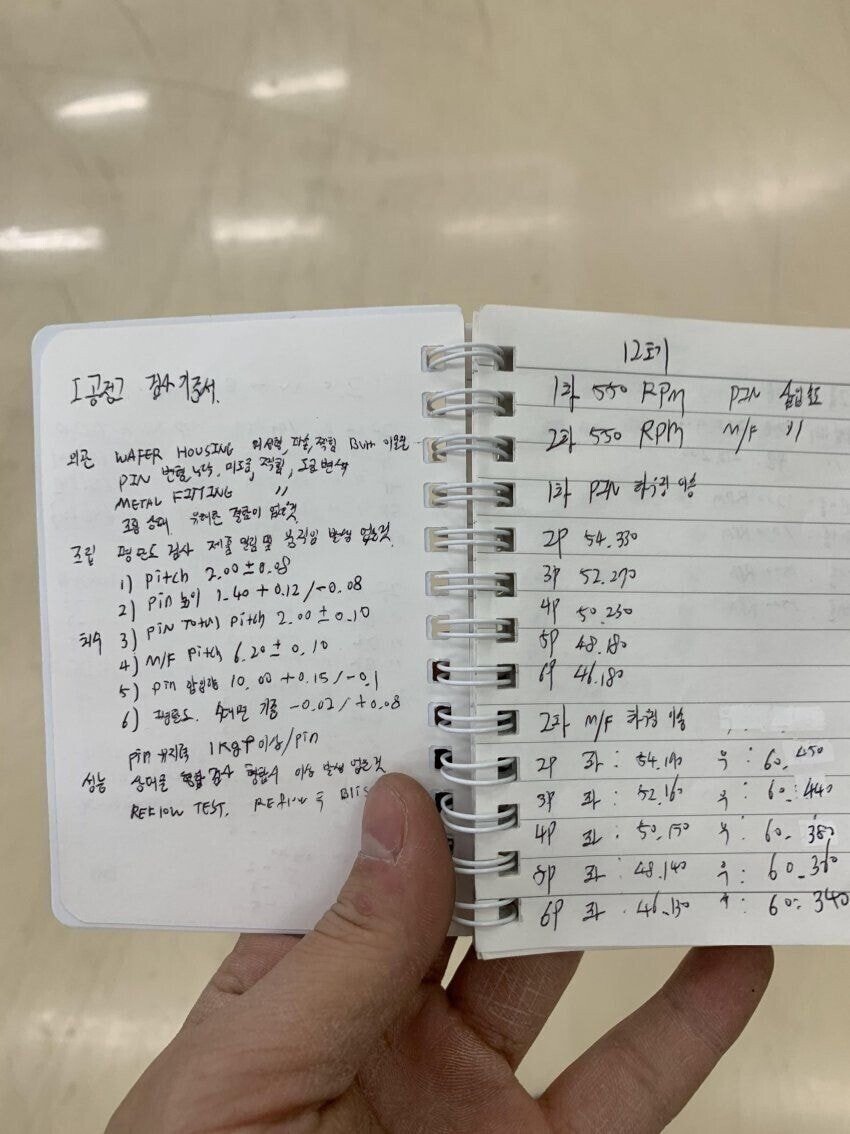 [공정] 검사기준서.
외관 WAFER HOUSING 미성형, 파손, 찍힘 Burr 이물질
PIN 변형, 누락, 미도금, 찍힘, 도금변색
METAL FITTING 〃
조립 상태 유해한 결함이 없을것
조립 평면도 검사 제품 밀림 및 움직임 발생 없을것.
1) pitch 2.00 ± 0.08
2) pin 높이 1.40 + 0.12 / -0.08
치수 3) PIN Total pitch 2.00 ± 0.10
4) M/F Pitch 6.20 ± 0.10
5) pin 압입량 10.00 + 0.15 / -0.1
6) 평탄도. 기준 -0.02 / +0.08
pin 유지력 1Kgf 이상/pin
성능 상대물 결합 검사 결합시 이상 발생 없을것
REFLOW TEST. REflow 후
12호기
1차 550 RPM PIN 삽입속도
2차 550 RPM M/F 〃
1차 PIN 하우징 이송
2P 54.330
3P 52.270
4P 50.230
5P 48.180
6P 46.180
2차 M/F 하우징 이송
2P 좌 : 54.190 우 : 60.450
3P 좌 : 52.160 우 : 60.440
4P 좌 : 50.150 우 : 60.380
5P 좌 : 48.140 우 : 60.360
6P 좌 : 46.130 우 : 60.340